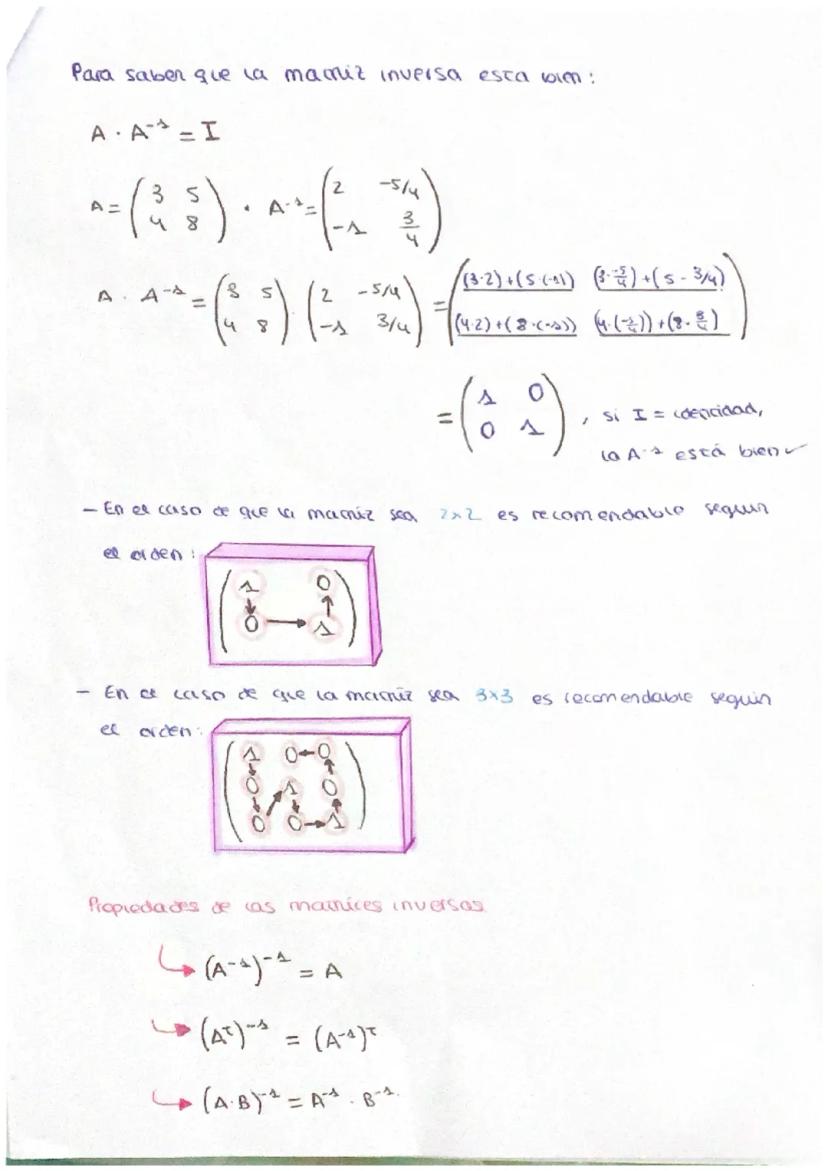 Para saber que la matriz inversa esta bien:
A · A⁻¹ = I
A = ( 3 5 ; 4 8 ) · A⁻¹ = ( 2 -5/4 ; -1 3/4 )
A · A⁻¹ = ( 3 5 ; 4 8 ) · ( 2 -5/4 ; -1 3/4 ) = ( (3·2)+(5·(-1)) (3·-5/4)+(5·3/4) ; (4·2)+(8·(-1)) (4·(-5/4))+(8·3/4) )
= ( 1 0 ; 0 1 ) , si I = identidad,
la A⁻¹ está bien ✓
- En el caso de que la matriz sea 2x2 es recomendable seguir
el orden:
1 0
↓ ↑
0 → 1
- En el caso de que la matriz sea 3x3 es recomendable seguir
el orden:
1 0 ← 0
0 1 0
0 0 → 1
Propiedades de las matrices inversas
↳ (A⁻¹)⁻¹ = A
↳ (Aᵀ)⁻¹ = (A⁻¹)ᵀ
↳ (A·B)⁻¹ = A⁻¹ · B⁻¹.